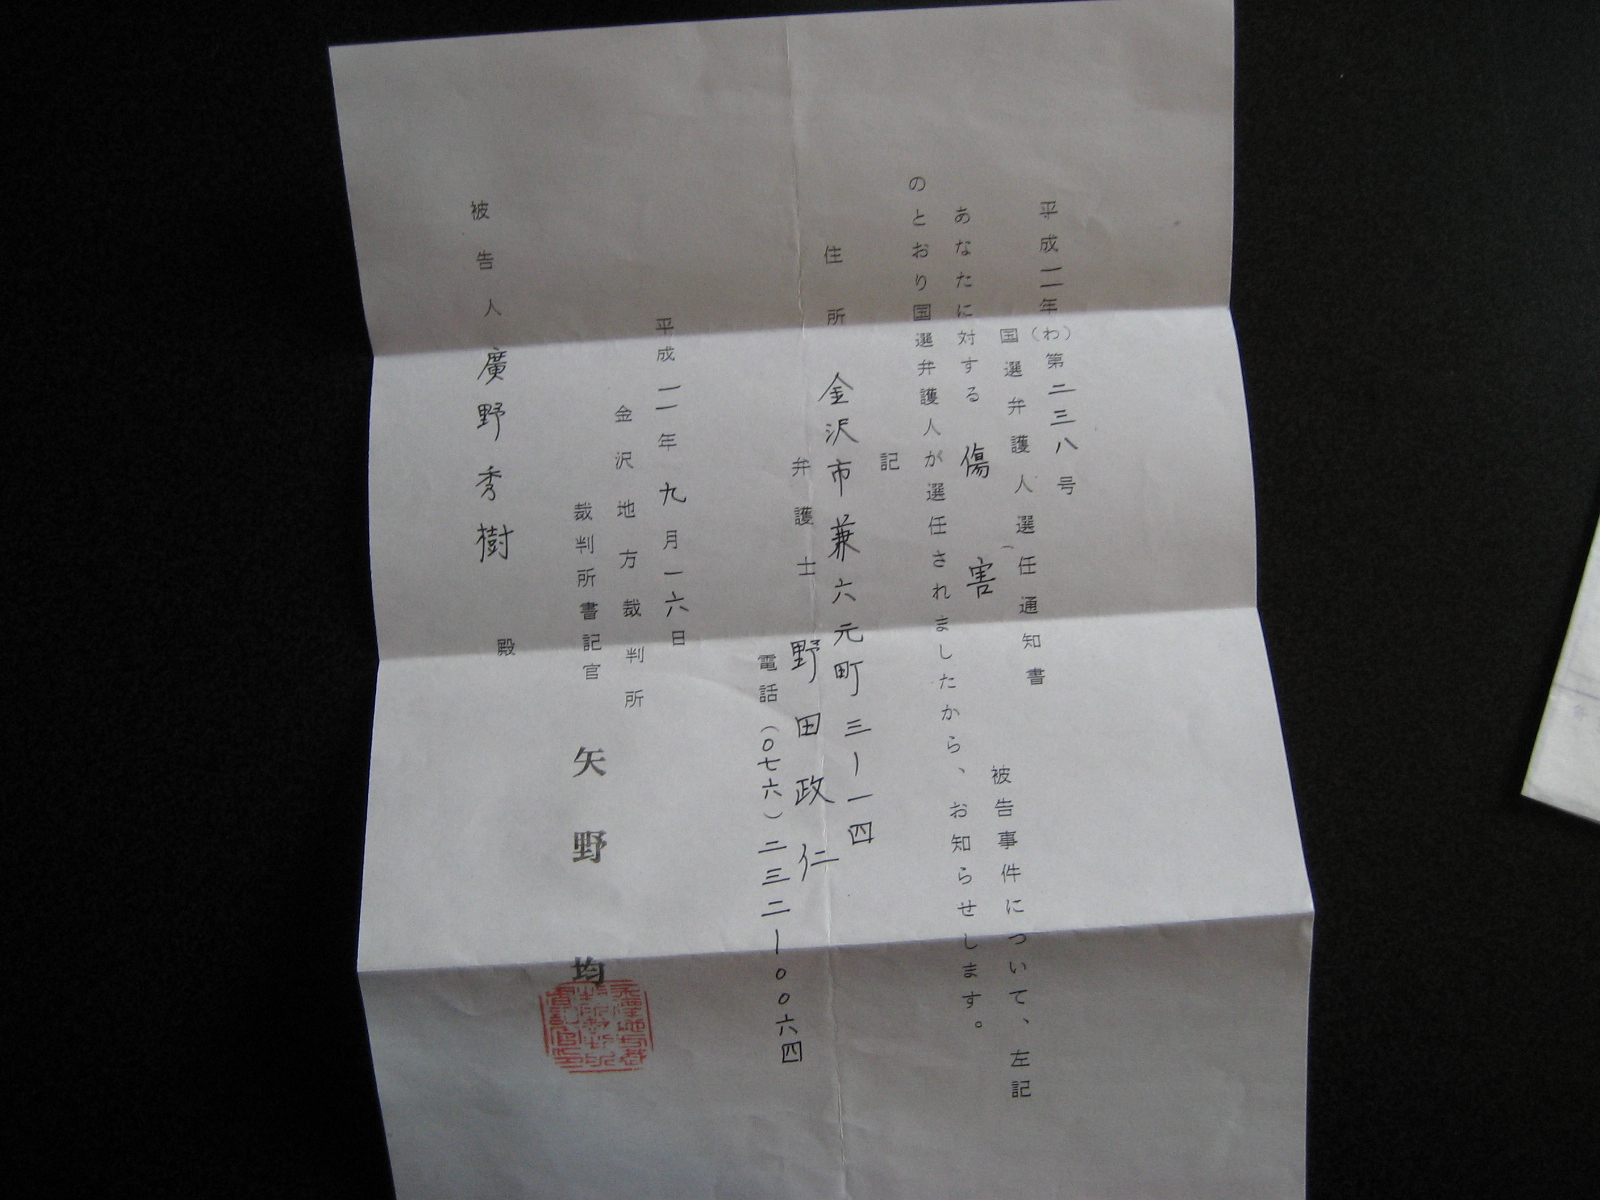 平成一一年(わ)第二三八号
国選弁護人選任通知書
あなたに対する 傷害 被告事件について、左記
のとおり国選弁護人が選任されましたから、お知らせします。
記
住所 金沢市兼六元町三ー一四
弁護士 野田政仁
電話(〇七六)二三二ー〇〇六四
平成一一年九月一六日
金沢地方裁判所
裁判所書記官 矢野均
被告人 廣野秀樹 殿